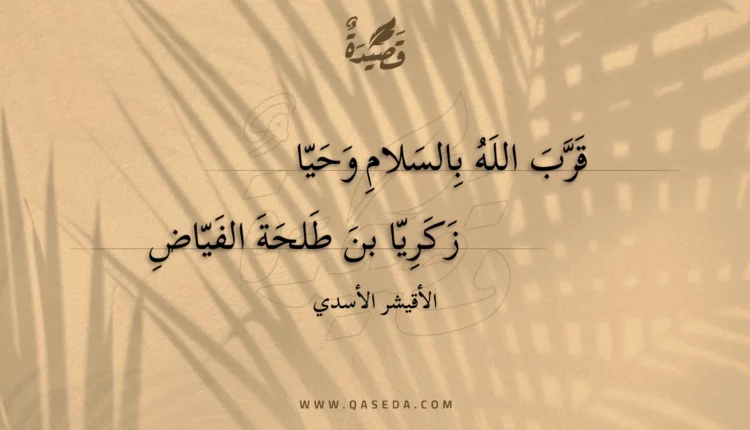 قَصِيدَةٌ
قَرَّبَ اللَهُ بِالسَلامِ وَحَيّا
زَكَرِيّا بنَ طَلحَةَ الفَيّاضِ
الأقيشر الأسدي
WWW.QASEDA.COM